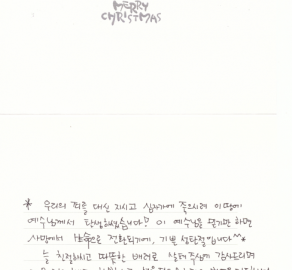 MERRY
CHRISTMAS
* 우리의 죄를 대신 지시고 십자가에 죽으시려 이땅에
예수님께서 탄생하셨습니다! 이 예수님을 믿기만 하면
사망에서 生命으로 전환되기에, 기쁜 성탄절입니다^^*
늘 친절하시고 따뜻한 배려로 살펴주심에 감사드리며